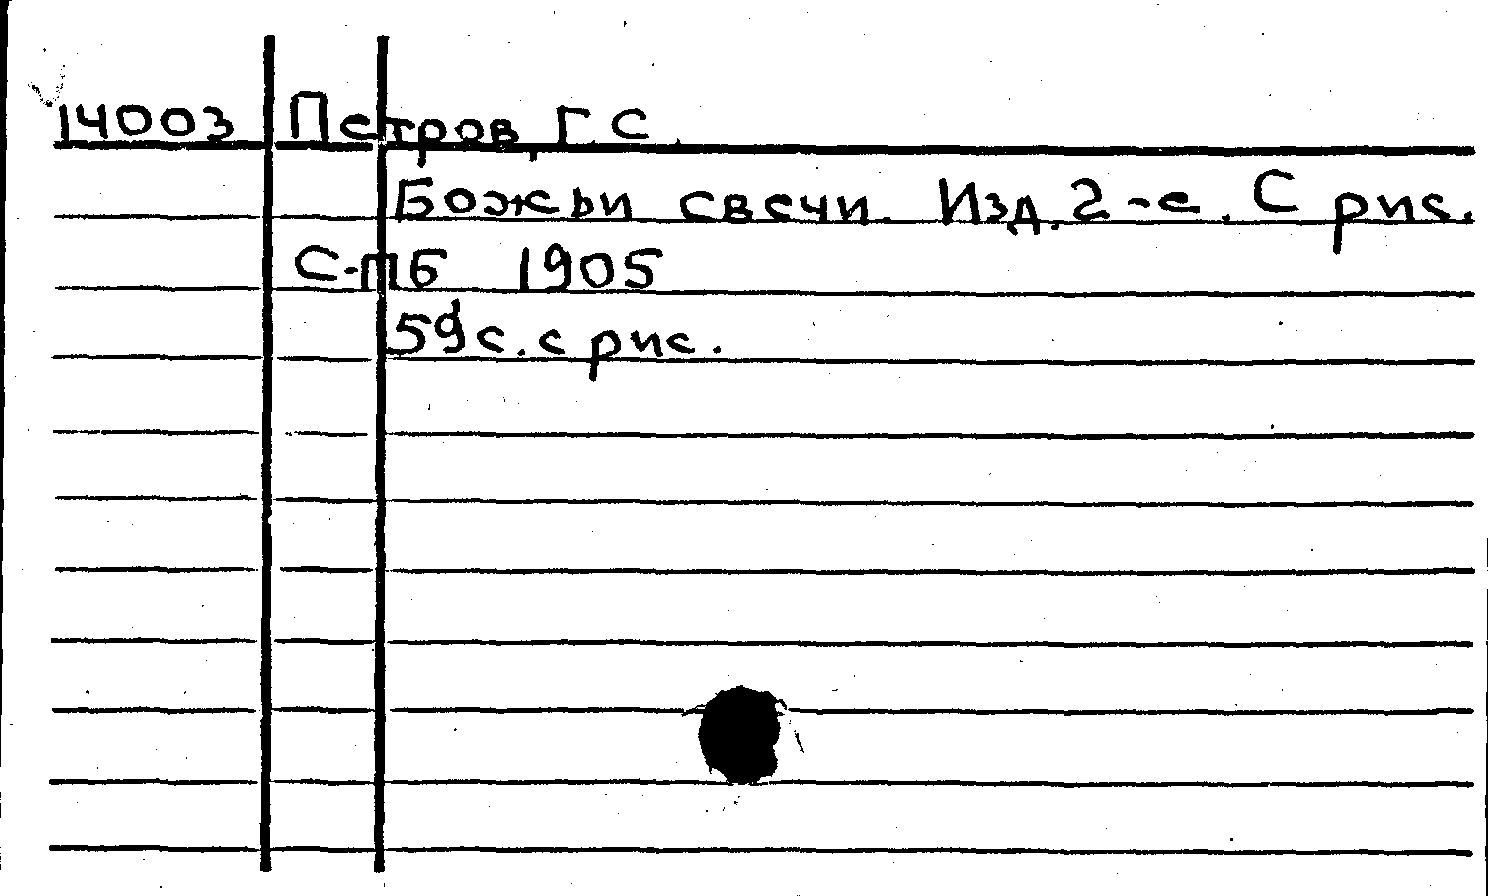 14003 Петров, Г. С.
Божьи свечи. Изд. 2-е. С рис.
С-Пб 1905
59 с. с рис.